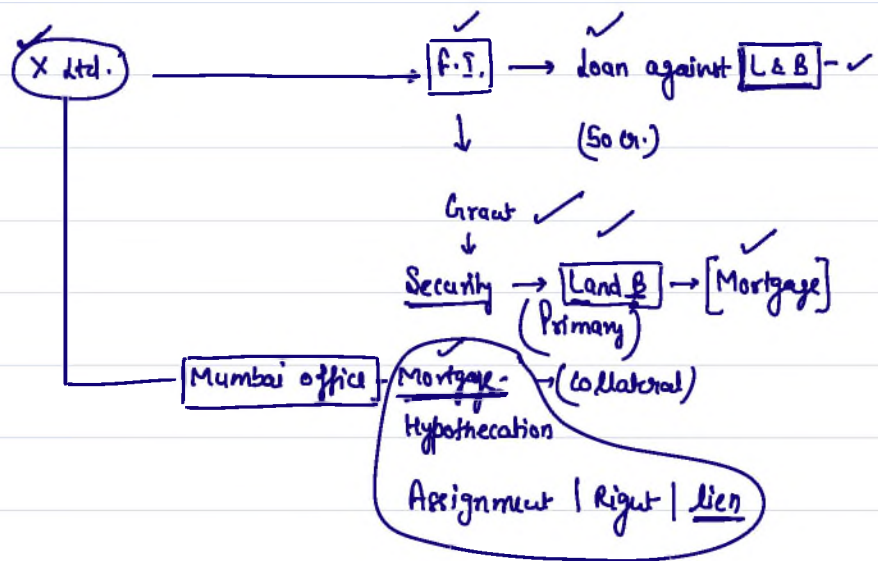 X Ltd. → F.I. → Loan against L & B - ✓
↓ (50 cr.)
Grant ✓
↓
Security → Land B → [Mortgage]
(Primary)
Mumbai office - Mortgage - → (Collateral)
Hypothecation
Assignment | Right | lien